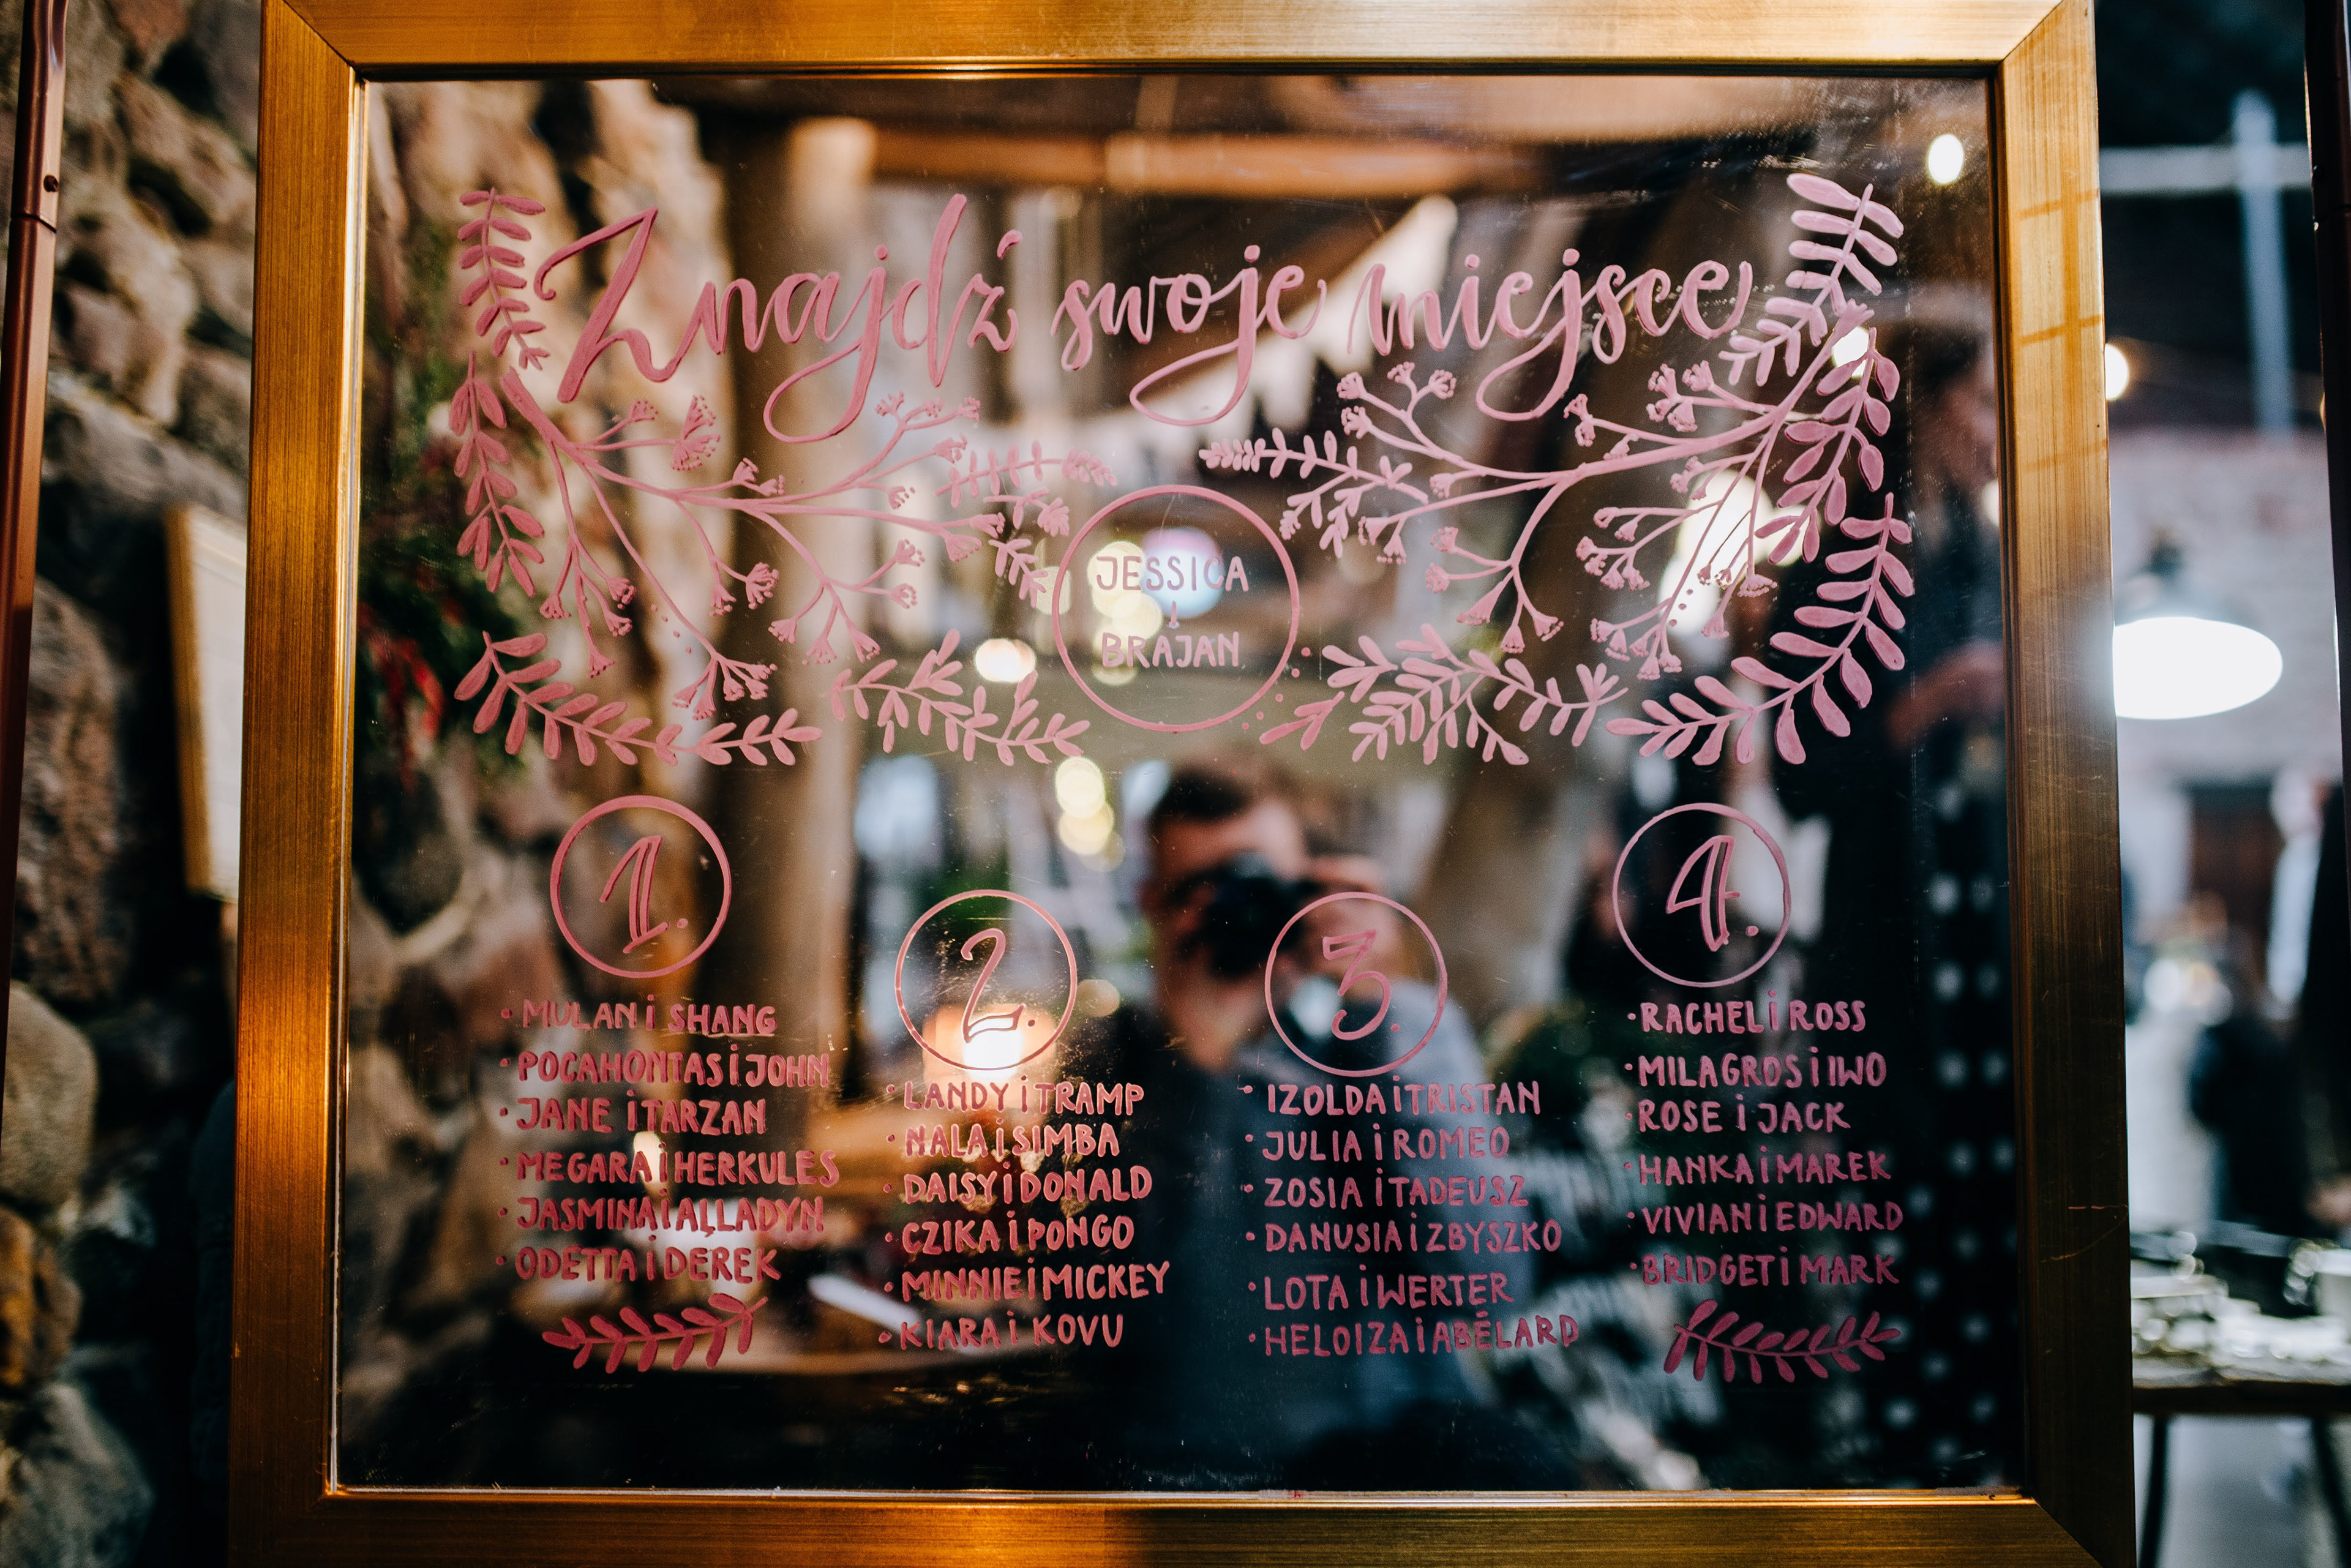 Znajdź swoje miejsce
JESSICA
i
BRAJAN
1.
• MULAN i SHANG
• POCAHONTAS i JOHN
• JANE i TARZAN
• MEGARA i HERKULES
• JASMINA i ALLADYN
• ODETTA i DEREK
2.
• LANDY i TRAMP
• NALA i SIMBA
• DAISY i DONALD
• CZIKA i PONGO
• MINNIE i MICKEY
• KIARA i KOVU
3.
• IZOLDA i TRISTAN
• JULIA i ROMEO
• ZOSIA i TADEUSZ
• DANUSIA i ZBYSZKO
• LOTA i WERTER
• HELOIZA i ABÉLARD
4.
• RACHEL i ROSS
• MILAGROS i IWO
• ROSE i JACK
• HANKA i MAREK
• VIVIAN i EDWARD
• BRIDGET i MARK